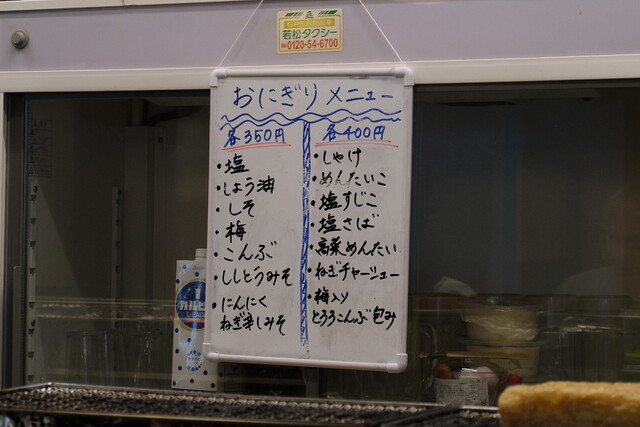 若松タクシー
0120-54-6700
おにぎりメニュー
各350円
・塩
・しょう油
・しそ
・梅
・こんぶ
・ししとうみそ
・にんにく
ねぎ辛しみそ
各400円
・しゃけ
・めんたいこ
・塩すじこ
・塩さば
・高菜めんたい
・ねぎチャーシュー
・梅入り
とろろこんぶ包み